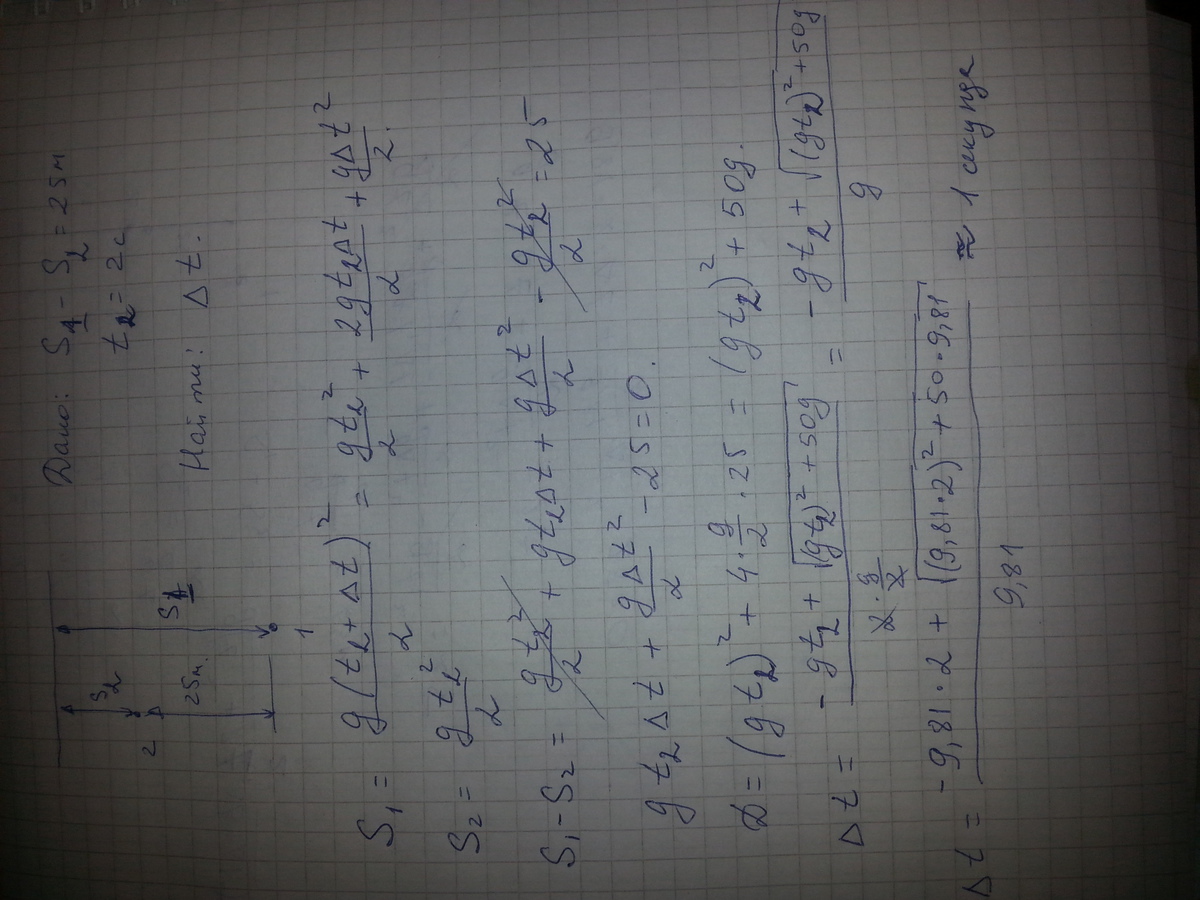 Дано: S₁ - S₂ = 25м
t₂ = 2с
Найти: Δt.
S₂
S₁
2
25м.
1
S₁ = g(t₂ + Δt)²/2 = gt₂²/2 + 2gt₂Δt/2 + gΔt²/2.
S₂ = gt₂²/2
S₁ - S₂ = gt₂²/2 + gt₂Δt + gΔt²/2 - gt₂²/2 = 25
gt₂Δt + gΔt²/2 - 25 = 0.
D = (gt₂)² + 4·g/2·25 = (gt₂)² + 50g.
Δt = (-gt₂ + √((gt₂)² + 50g))/(2·g/2) = (-gt₂ + √((gt₂)² + 50g))/g
Δt = (-9,81·2 + √((9,81·2)² + 50·9,81))/9,81 ≈ 1 секунда